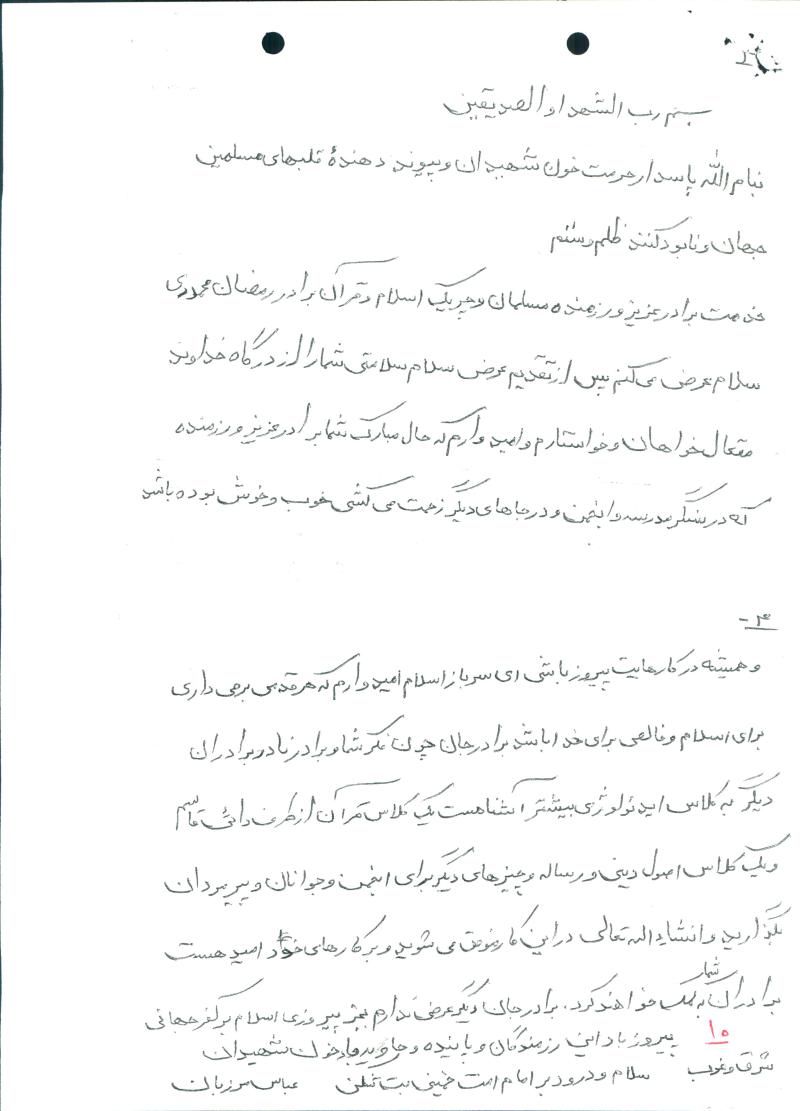 بسم رب الشهدا و الصدیقین
بنام الله پاسدار حرمت خون شهیدان و پیوند دهندهٔ قلبهای مسلمین
جهان و نابود کننده ظلم و ستم
خدمت برادر عزیز و رزمنده مسلمان و چریک اسلام و قرآن برادر رمضان محمودی
سلام عرض می کنم پس از تقدیم عرض سلام سلامتی شما را از درگاه خداوند
متعال خواهان و خواستارم و امید وارم که حال مبارک شما برادر عزیز و رزمنده
که در سنگر مدرسه و انجمن و در جاهای دیگر زحمت می کشی خوب و خوش بوده باشد
۴-
و همیشه در کارهایت پیروز باشی ای سرباز اسلام امید وارم که هر قدمی برمی داری
برای اسلام و خالصی برای خدا باشد برادر جان چون فکر شما و برادر نادر و برادران
دیگر به کلاس ایدئولوژی بیشتر آشناهست یک کلاس قرآن از طرف دائی قاسم
و یک کلاس اصول دینی و رساله و چیزهای دیگر برای انجمن و جوانان و پیرمردان
بگذارید و انشاءالله تعالی در این کار موفق می شوید و بر کارهای خود امید هست
برادران شمار کمک خواهند کرد. برادر جان دیگر عرضی ندارم بجز پیروزی اسلام بر کفر جهانی
شرق و غرب ۱۰ پیروز باد این رزمندگان و پاینده و جاوید باد خون شهیدان
سلام و درود بر امام امت خمینی بت شکن عباس مرزبان